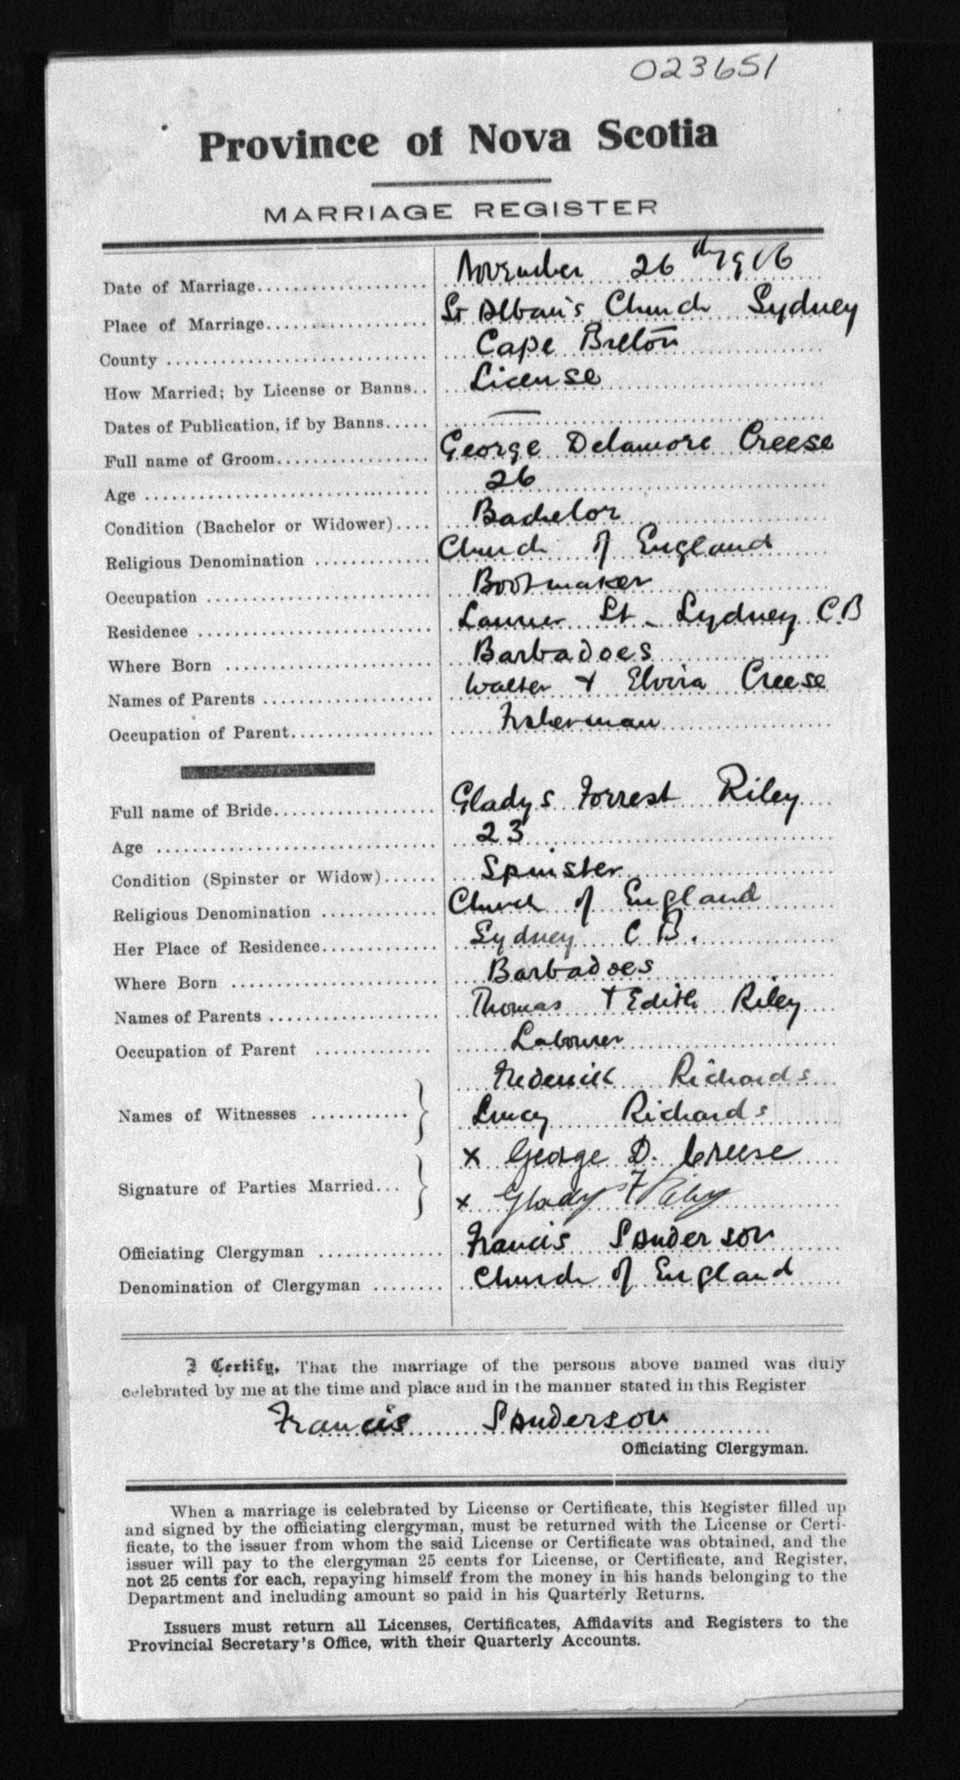 023651
Province of Nova Scotia
MARRIAGE REGISTER
Date of Marriage.................... November 26th 1916
Place of Marriage.................. St Alban's Church Sydney
County ............................ Cape Breton
How Married; by License or Banns.. License
Dates of Publication, if by Banns..... —
Full name of Groom.................. George Delamore Creese
Age ............................... 26
Condition (Bachelor or Widower).... Bachelor
Religious Denomination ............. Church of England
Occupation ........................ Bootmaker
Residence .......................... St. Sydney CB
Where Born ........................ Barbadoes
Names of Parents ................... Walter + Elvira Creese
Occupation of Parent................ Fisherman
Full name of Bride.................. Gladys Forrest Riley
Age ............................... 23
Condition (Spinster or Widow)...... Spinster
Religious Denomination ............. Church of England
Her Place of Residence............. Sydney C B.
Where Born ........................ Barbadoes
Names of Parents ................... Thomas + Edith Riley
Occupation of Parent ............. Labourer
Frederick Richards
Names of Witnesses ........... } Lucy Richards
x George D. Creese
Signature of Parties Married... } x Gladys F Riley
Officiating Clergyman .............. Francis Sanderson
Denomination of Clergyman ........ Church of England
I Certify, That the marriage of the persons above named was duly
celebrated by me at the time and place and in the manner stated in this Register
Francis Sanderson
Officiating Clergyman.
When a marriage is celebrated by License or Certificate, this Register filled up
and signed by the officiating clergyman, must be returned with the License or Certi-
ficate, to the issuer from whom the said License or Certificate was obtained, and the
issuer will pay to the clergyman 25 cents for License, or Certificate, and Register,
not 25 cents for each, repaying himself from the money in his hands belonging to the
Department and including amount so paid in his Quarterly Returns.
Issuers must return all Licenses, Certificates, Affidavits and Registers to the
Provincial Secretary's Office, with their Quarterly Accounts.